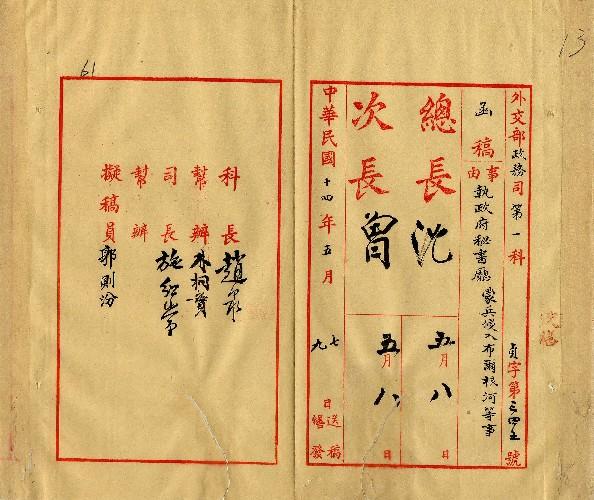 13
外交部政務司第一科 貞字第三四五號
函稿
事由 執政府秘書廳 蒙兵侵入布爾根河等事
總長 沈 五月八日
次長 曾 五月八日
中華民國十四年五月 七日送稿 九日繕發
61
科長 趙
幫辦
司長 施紹常
幫辦
擬稿員 郭則汾